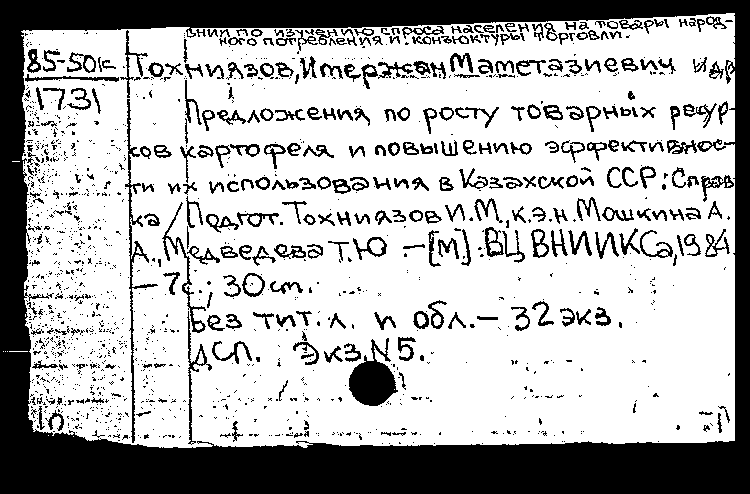 ВНИИ по изучению спроса населения на товары народ-
ного потребления и конъюктуры торговли.
85-50к Тохниязов, Итержан Маметазиевич и др
1731
Предложения по росту товарных ресур-
сов картофеля и повышению эффективнос-
ти их использования в Казахской ССР: Справ
ка / Подгот. Тохниязов И.М., к.э.н. Мошкина А.
А., Медведева Т.Ю. – [М]: ВЦ ВНИИКСа, 1984.
– 7с.; 30 cm.
Без тит. л. и обл. – 32 экз.
ДСП. Экз. N5.
10